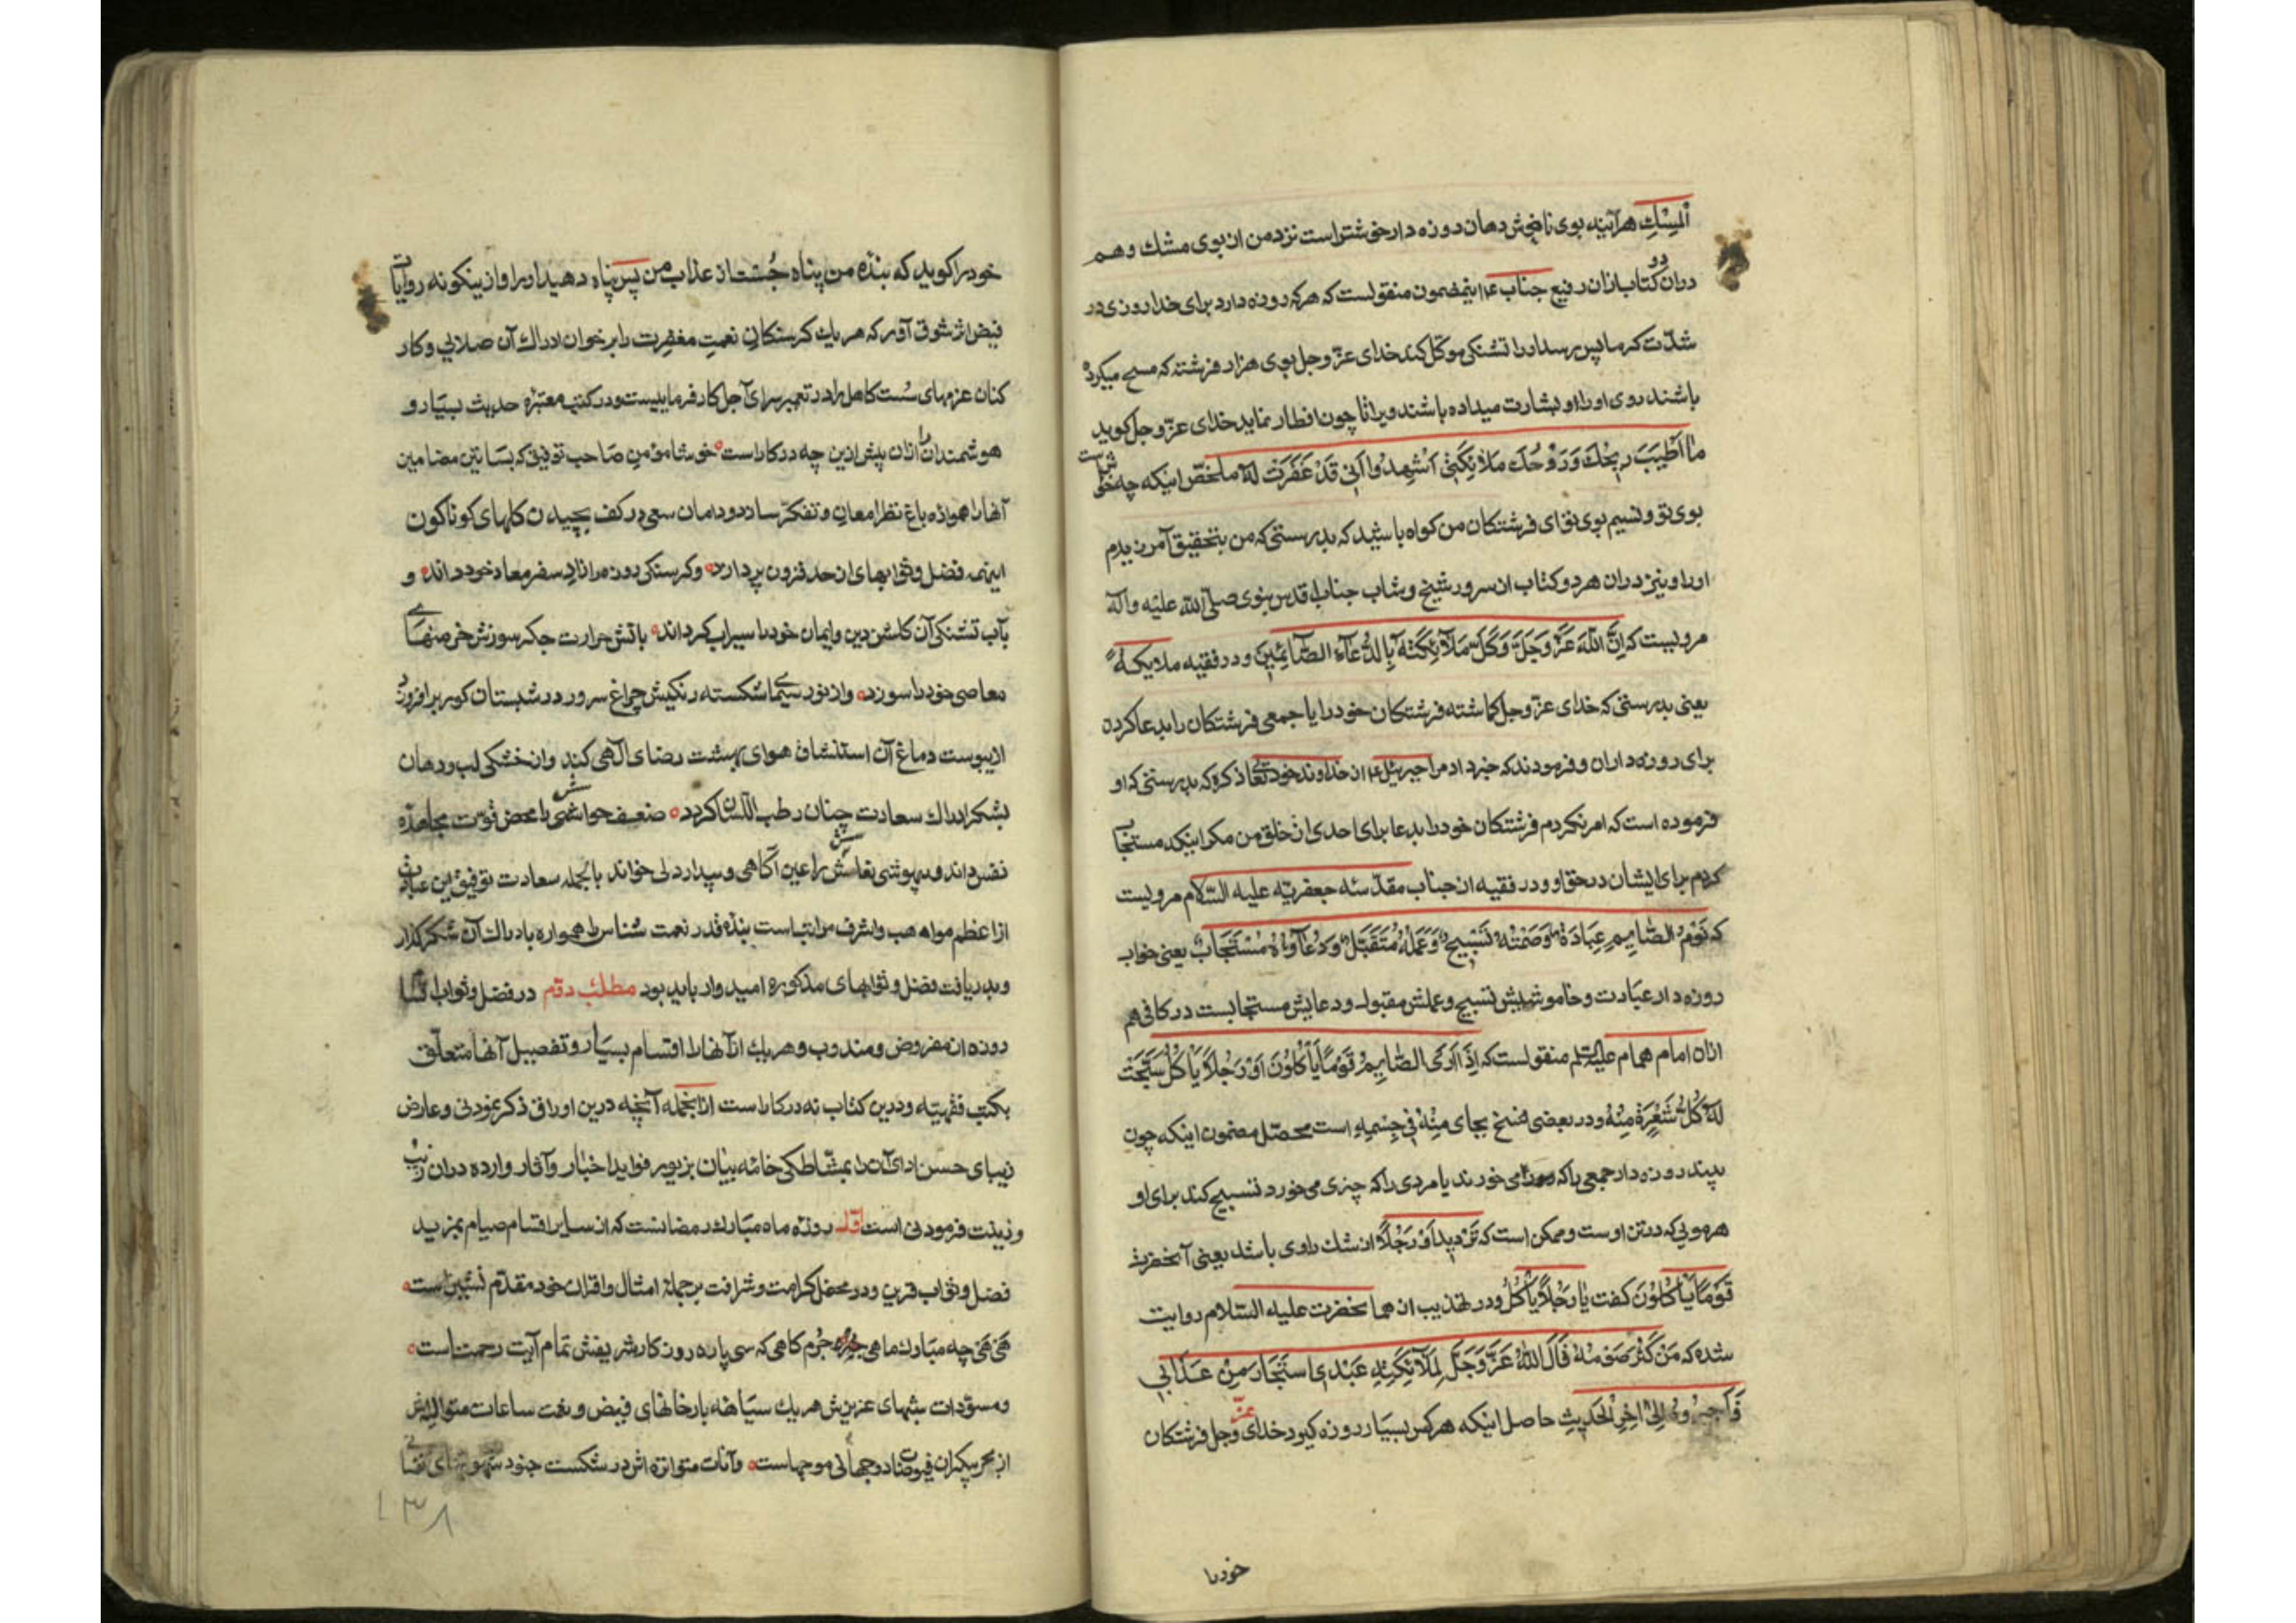 المِسْكِ هرآینه بوی ناخوش دهان روزه دار خوشتر است نزد من از بوی مشك و هم
در ان دو کتاب ازان رفیع جناب ع اینمضمون منقولست که هرکه روزه دارد برای خدا روزی در
شدّت کرما پس برسد اورا تشنکی موکّل کند خدای عزّ و جل بوی هزار فرشته که مسح میکرده
باشند روی اورا و بشارت میداده باشند ویرا تا چون افطار نماید خدای عزّ و جل کوید
ما اَطْیَبَ رِیحُكَ وَرَوْحُكَ مَلائِکَتِی اَشْهِدُوا اَنِی قَدْ غَفَرْتُ لَهُ ملخّص اینکه چه خوش است
بوی تو و نسیم بوی تو ای فرشتکان من کواه باشید که بدرستی که من بتحقیق آمرزیدم
اورا و نیز دران هر دو کتاب از سرور شیخ و شاب جناب اقدس نبوی صلّی الله علیه وآله
مرویست که اِنَّ اللهَ عَزَّ وَجَلَّ وَکَّلَ مَلآئِکَتَهُ بِالدُّعَآءِ الصَّآئِمِینَ و در فقیه ملایکه
یعنی بدرستی که خدای عزّ و جل کماشته فرشتکان خود را یا جمعی فرشتکان را بدعا کردن
برای روزه داران و فرمودند که خبر داد مرا جبرئیل ع از خداوند خود تعالی ذکره که بدرستی که او
فرموده است که امر نکردم فرشتکان خود را بدعا برای احدی از خلق من مکر اینکه مستجاب
کردم برای ایشان در حق او و در فقیه از جناب مقدّسه جعفریّه علیه السّلام مرویست
که نَوْمُ الصَّایِمِ عِبَادَةٌ وَصَمْتُهُ تَسْبِیحٌ وَعَمَلُهُ مُتَقَبَّلٌ وَدُعَآؤُهُ مُسْتَجَابٌ یعنی خواب
روزه دار عبادت و خاموشیش تسبیح و عملش مقبول و دعایش مستجابست در کافی هم
ازان امام همام علیه السلم منقولست که اِذَا رَای الصَّایِمُ قَوْمًا یَأْکُلُونَ اَوْ رَجُلاً یَأْکُلُ سَبَّحَتْ
لَهُ کُلُّ شَعْرَةٍ مِنْهُ و در بعضی نسخ بجای مِنْهُ فِی جِسْمِهِ است محصّل مضمون اینکه چون
بیند روزه دار جمعی را که می خورند یا مردی را که چیزی می خورد تسبیح کند برای او
هر مویی که در تن اوست و ممکن است که تَرْدِید اَوْ رَجُلاً از شك راوی باشد یعنی آنحضرت
قَوْمًا یَأْکُلُوْنَ کفت یا رَجُلاً یَأْکُلُ و در تهذیب از هما نحضرت علیه السّلام روایت
شده که مَنْ کَثُرَ صَوْمُهُ قَالَ اللهُ عَزَّ وَجَلَّ لِمَلآئِکَتِهِ عَبْدِی اسْتَجَارَ مِنْ عَذَابِی
فَاَجِیرُوهُ اِلیٰ اخِرِ الْحَدِیثِ حاصل اینکه هرکس بسیار روزه کیرد خدای عزّ و جل فرشتکان
خود را
خود را کوید که بنده من پناه جُست از عذاب من پس پناه دهید اورا و از ینکونه روایات
فیض اثر شوق آور که هر یك کرسنکان نعمت مغفرت را بر خوان ادراك آن صلایی و کار
کنان عزمهای سُست کاهل را در تعمیر سرای آجل کار فرماییست و در کتب معتبره حدیث بسیار و
هوشمندان را ازان پیش ازین چه در کار است خوشا مؤمن صاحب توفیق که بساتین مضامین
آنها را همواره باغ نظر امعان و تفکّر سازد و دامان سعی در کف بچیدن کلهای کوناکون
اینهمه فضل و ثوابهای از حد فزون پردازد و کرسنکی روزه را زاد سفر معاد خود داند و
بآب تشنکی آن کلشن دین و ایمان خود را سیراب کرداند باتش حرارت جکر سوزش خرمنهای
معاصی خود را سوزد و از نور سیمای شکسته رنکیش چراغ سرور در شبستان کور بر افروزد
از یبوست دماغ آن استنشاق هوای بهشت رضای آلهی کند و از خشکی لب و دهان
بشکر ادراك سعادت چنان رطب اللّسان کردد ضعف حواسش را محض قوّت مجاهده
نفس داند و بیهوشی نعاسش را عین آکاهی و بیدار دلی خواند بالجمله سعادت توفیق این عبادت
از اعظم مواهب و اشرف مراتب است بنده قدر نعمت شناس را همواره بادراك آن شکر کذار
و بدریافت فضل و ثوابهای مذکوره امیدوار باید بود مطلب دوّم در فضل و ثواب اقسام
روزه از مفروض و مندوب و هر یك از آنها را اقسام بسیار و تفصیل آنها متعلّق
بکتب فقهیّه و درین کتاب نه درکار است ازانجمله آنچه درین اوراق ذکر نمودنی و عارض
زیبای حسن ادای آن را بمشّاطکی خامه بیان بزیور فواید اخبار و آثار وارده دران زیب
و زینت فرمودنی است اوّل روزه ماه مبارك رمضانست که از سایر اقسام صیام بمزید
فضل و ثواب قرین و در محفل کرامت و شرافت بر جمله امثال و اقران خود مقدّم نشین است
هَی هَی چه مبارك ماهی جرم کاهی که سی پاره روز کار شریفش تمام آیت رحمت است
و مسوّدات شبهای عزیزش هر یك سیاهه بارخانهای فیض و نعمت ساعات متوالیش
از بحر بیکران فیوضات در جهانی موجهاست و آنات متواتره اش در شکست جنود
۱۳۸